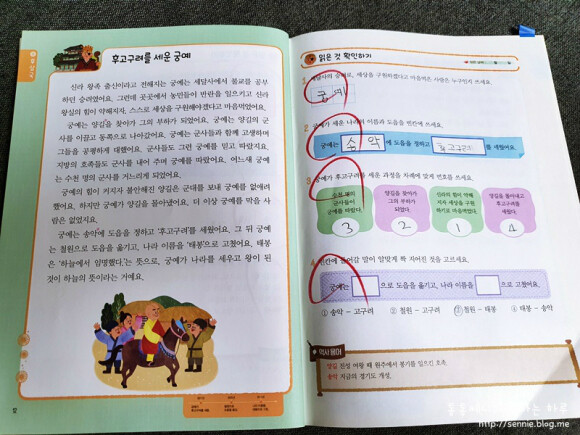 후고구려를 세운 궁예
신라 왕족 출신이라고 전해지는 궁예는 세달사에서 불교를 공부
하던 승려였어요. 그런데 곳곳에서 농민들이 반란을 일으키고 신라
왕실의 힘이 약해지자, 스스로 세상을 구원해야겠다고 마음먹었어요.
궁예는 양길을 찾아가 그의 부하가 되었어요. 궁예는 양길의 군
사를 이끌고 동쪽으로 나아갔어요. 궁예는 군사들과 함께 고생하며
그들을 공평하게 대했어요. 군사들도 그런 궁예를 믿고 따랐지요.
지방의 호족들도 군사를 내어 주며 궁예를 따랐어요. 어느새 궁예
는 수천 명의 군사를 거느리게 되었어요.
궁예의 힘이 커지자 불안해진 양길은 군대를 보내 궁예를 없애려
했어요. 하지만 궁예가 양길을 몰아냈어요. 더 이상 궁예를 막을 사
람은 없었지요.
궁예는 송악에 도읍을 정하고 '후고구려'를 세웠어요. 그 뒤 궁예
는 철원으로 도읍을 옮기고, 나라 이름을 '태봉'으로 고쳤어요. 태봉
은 '하늘에서 임명했다.'는 뜻으로, 궁예가 나라를 세우고 왕이 된
것이 하늘의 뜻이라는 거예요.
12
읽은 것 확인하기
1 세달사의 승려로, 세상을 구원하겠다고 마음먹은 사람은 누구인지 쓰세요.
궁예
2 궁예가 세운 나라의 이름과 도읍을 빈칸에 쓰세요.
궁예는 송악 에 도읍을 정하고 후고구려 를 세웠어요.
3 궁예가 후고구려를 세운 과정을 차례에 맞게 번호를 쓰세요.
수천 명의 군사들이 궁예를 따랐다.
3
양길을 찾아가 그의 부하가 되었다.
2
신라의 힘이 약해지자 세상을 구원하기로 마음먹었다.
1
양길을 몰아내고 후고구려를 세웠다.
4
4 빈칸에 들어갈 말이 알맞게 짝 지어진 것을 고르세요.
궁예는 으로 도읍을 옮기고, 나라 이름을 으로 고쳤어요.
① 송악 - 고구려 ② 철원 - 고구려 ③ 철원 - 태봉 ④ 태봉 - 송악
역사 용어
양길 진성 여왕 때 원주에서 봉기를 일으킨 호족.
송악 지금의 경기도 개성.
http://sennie.blog.me